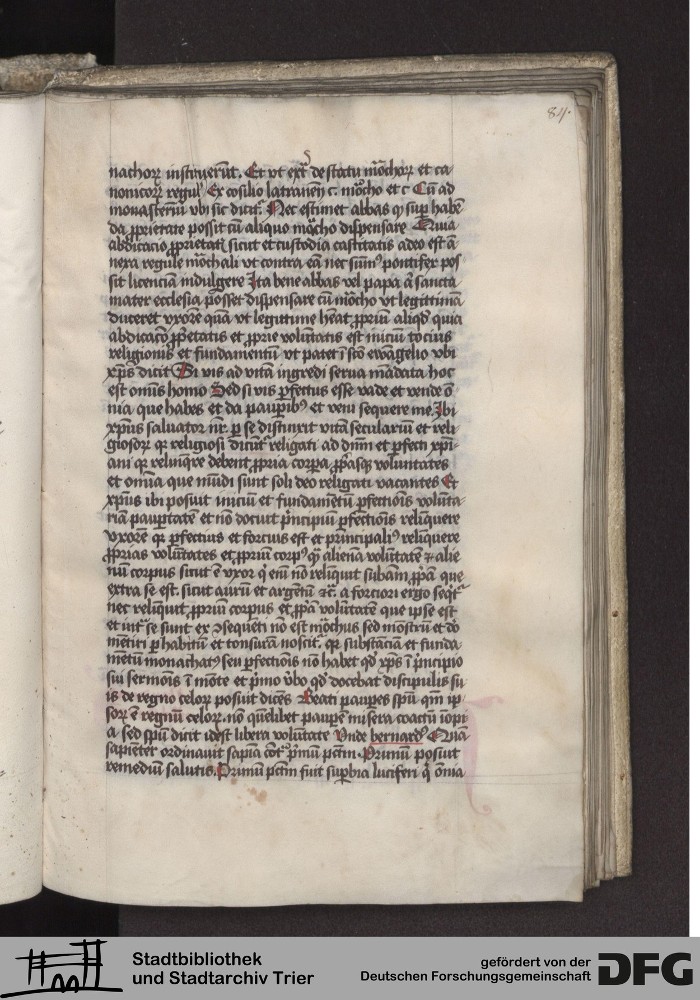 84.
nachoꝝ instruerūt. Et ut extͣ de statu mōchoꝝ et ca
nonicoꝝ reguͥ Ex cōsilio lat̓aneñ c. mōcho et c Cū ad
monasteriū ubi sic dicitͬ. Nec estimet abbas qͥ suꝑ habē
da ꝓprietate possit cū aliquo mōcho dispensare Quia
abdicacio ꝓprietatͥ sicut et custodia castitatis adeo est ā
nexa regule mōchali ut contra eā nec sūmꝰ pontifex pos
sit licenciā indulgere Ita bene abbas vel papa a sancta
mater ecclesia posset dispensare cū mōcho ut legittimā
duceret uxorē quā ut legittime heāt ꝓpriū aliqd̓ quia
abdicacō ꝓp̓etatis et ꝓprie volūtatis est iniciū tocius
religionis et fundamentū ut patet ī scō ewāgelio ubi
xp̄us dicit Si vis ad vitā ingredi serva mādata hoc
est omīs homo Sed si vis ꝑfectus esse vade et vende ō
nia que habes et da pauꝑibꝰ et veni sequere me. Ibi
xp̄us salvator nr̄. ꝑ se distinxit vitā seculariū et reli
giosoꝝ qꝛ religiosi dicūtͬ religati ad dn̄m et ꝑfecti xp̄i
ani qꝛ relinq̄re debent ꝓpria corꝑa ꝓp̓asqꝫ voluntates
et omīa que mūdi sunt soli deo religati vacantes Et
xp̄us ibi posuit iniciū et fundamētū ꝑfectiōis volūta
riā pauꝑtatē et nō docuit p̓ncipiū ꝑfectiōis relīquere
uxorē qꝛ ꝑfectius et forcius est et prīncipaliꝰ relīquere
ꝓprias volūtates et ꝓpriū corpꝰ qͣꝫ alienā volūtatē ⁊ alie
nū corpus sicut ē uxor qͥ enī nō relīquit subām ꝓp̓ā que
extra se est. sicut aurū et argētū ⁊c̄. a forciori ergo seqͥtͬ
nec relīquit ꝓpriū corpus et ꝓp̓ā volūtatē que ipse est
et intͬ se sunt ex ꝯsequēti nō est mōchus sed mōstrū et do
mētiri ꝑ habitū et tonsurā noscitͬ. qꝛ substāciā et funda
mētū monachatꝰ seu ꝑfectiōis nō habet qd̓ xp̄s ī p̓ncipio
sui sermōis ī mōte et p̓mo v̓bo qd̓ docebat discipulis su
is de regno celoꝝ posuit dicēs Beati pauꝑes spū qm̄ ip
soꝝ ē regnū celoꝝ. nō quēlibet pauꝑē misera coactū īopi
a sed spū dicit idest libera volūtate Unde bernardꝰ Quia
sapiēter ordinavit sapīa p̓mū pctm̄. Primū posuit
remediū salutis. Primū pctm̄ fuit suꝑbia luciferi qͥ ōnia
Stadtbibliothek
und Stadtarchiv Trier
gefördert von der
Deutschen Forschungsgemeinschaft
DFG